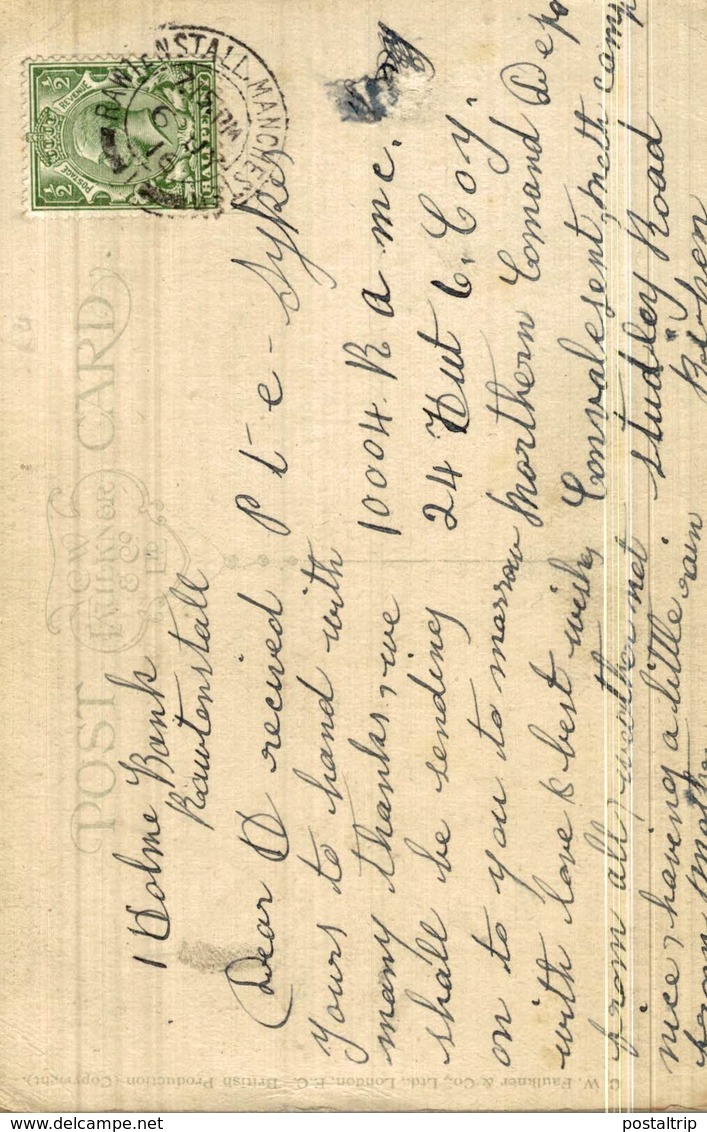 POST CARD
C. W.
FAULKNER
& CO.
LTD
1 Holme Bank
Rawtenstall
Dear H recived
yours to hand with
many thanks, we
shall be sending
on to you to morrow
with love & best wishs
from all, weather not
nice, having a little rain
from Mother
Pte - Sykes
10004. R a m c.
24 Hut C. Coy.
Northern Comand Depo
Convalesent, camp
Studley Road
Ripon
RAWTENSTALL. MANCHESTER
POSTAGE
REVENUE
½
½
HALFPENNY
C. W. Faulkner & Co., Ltd., London, E.C. British Production (Copyright).
delcampe.net
postaltrip